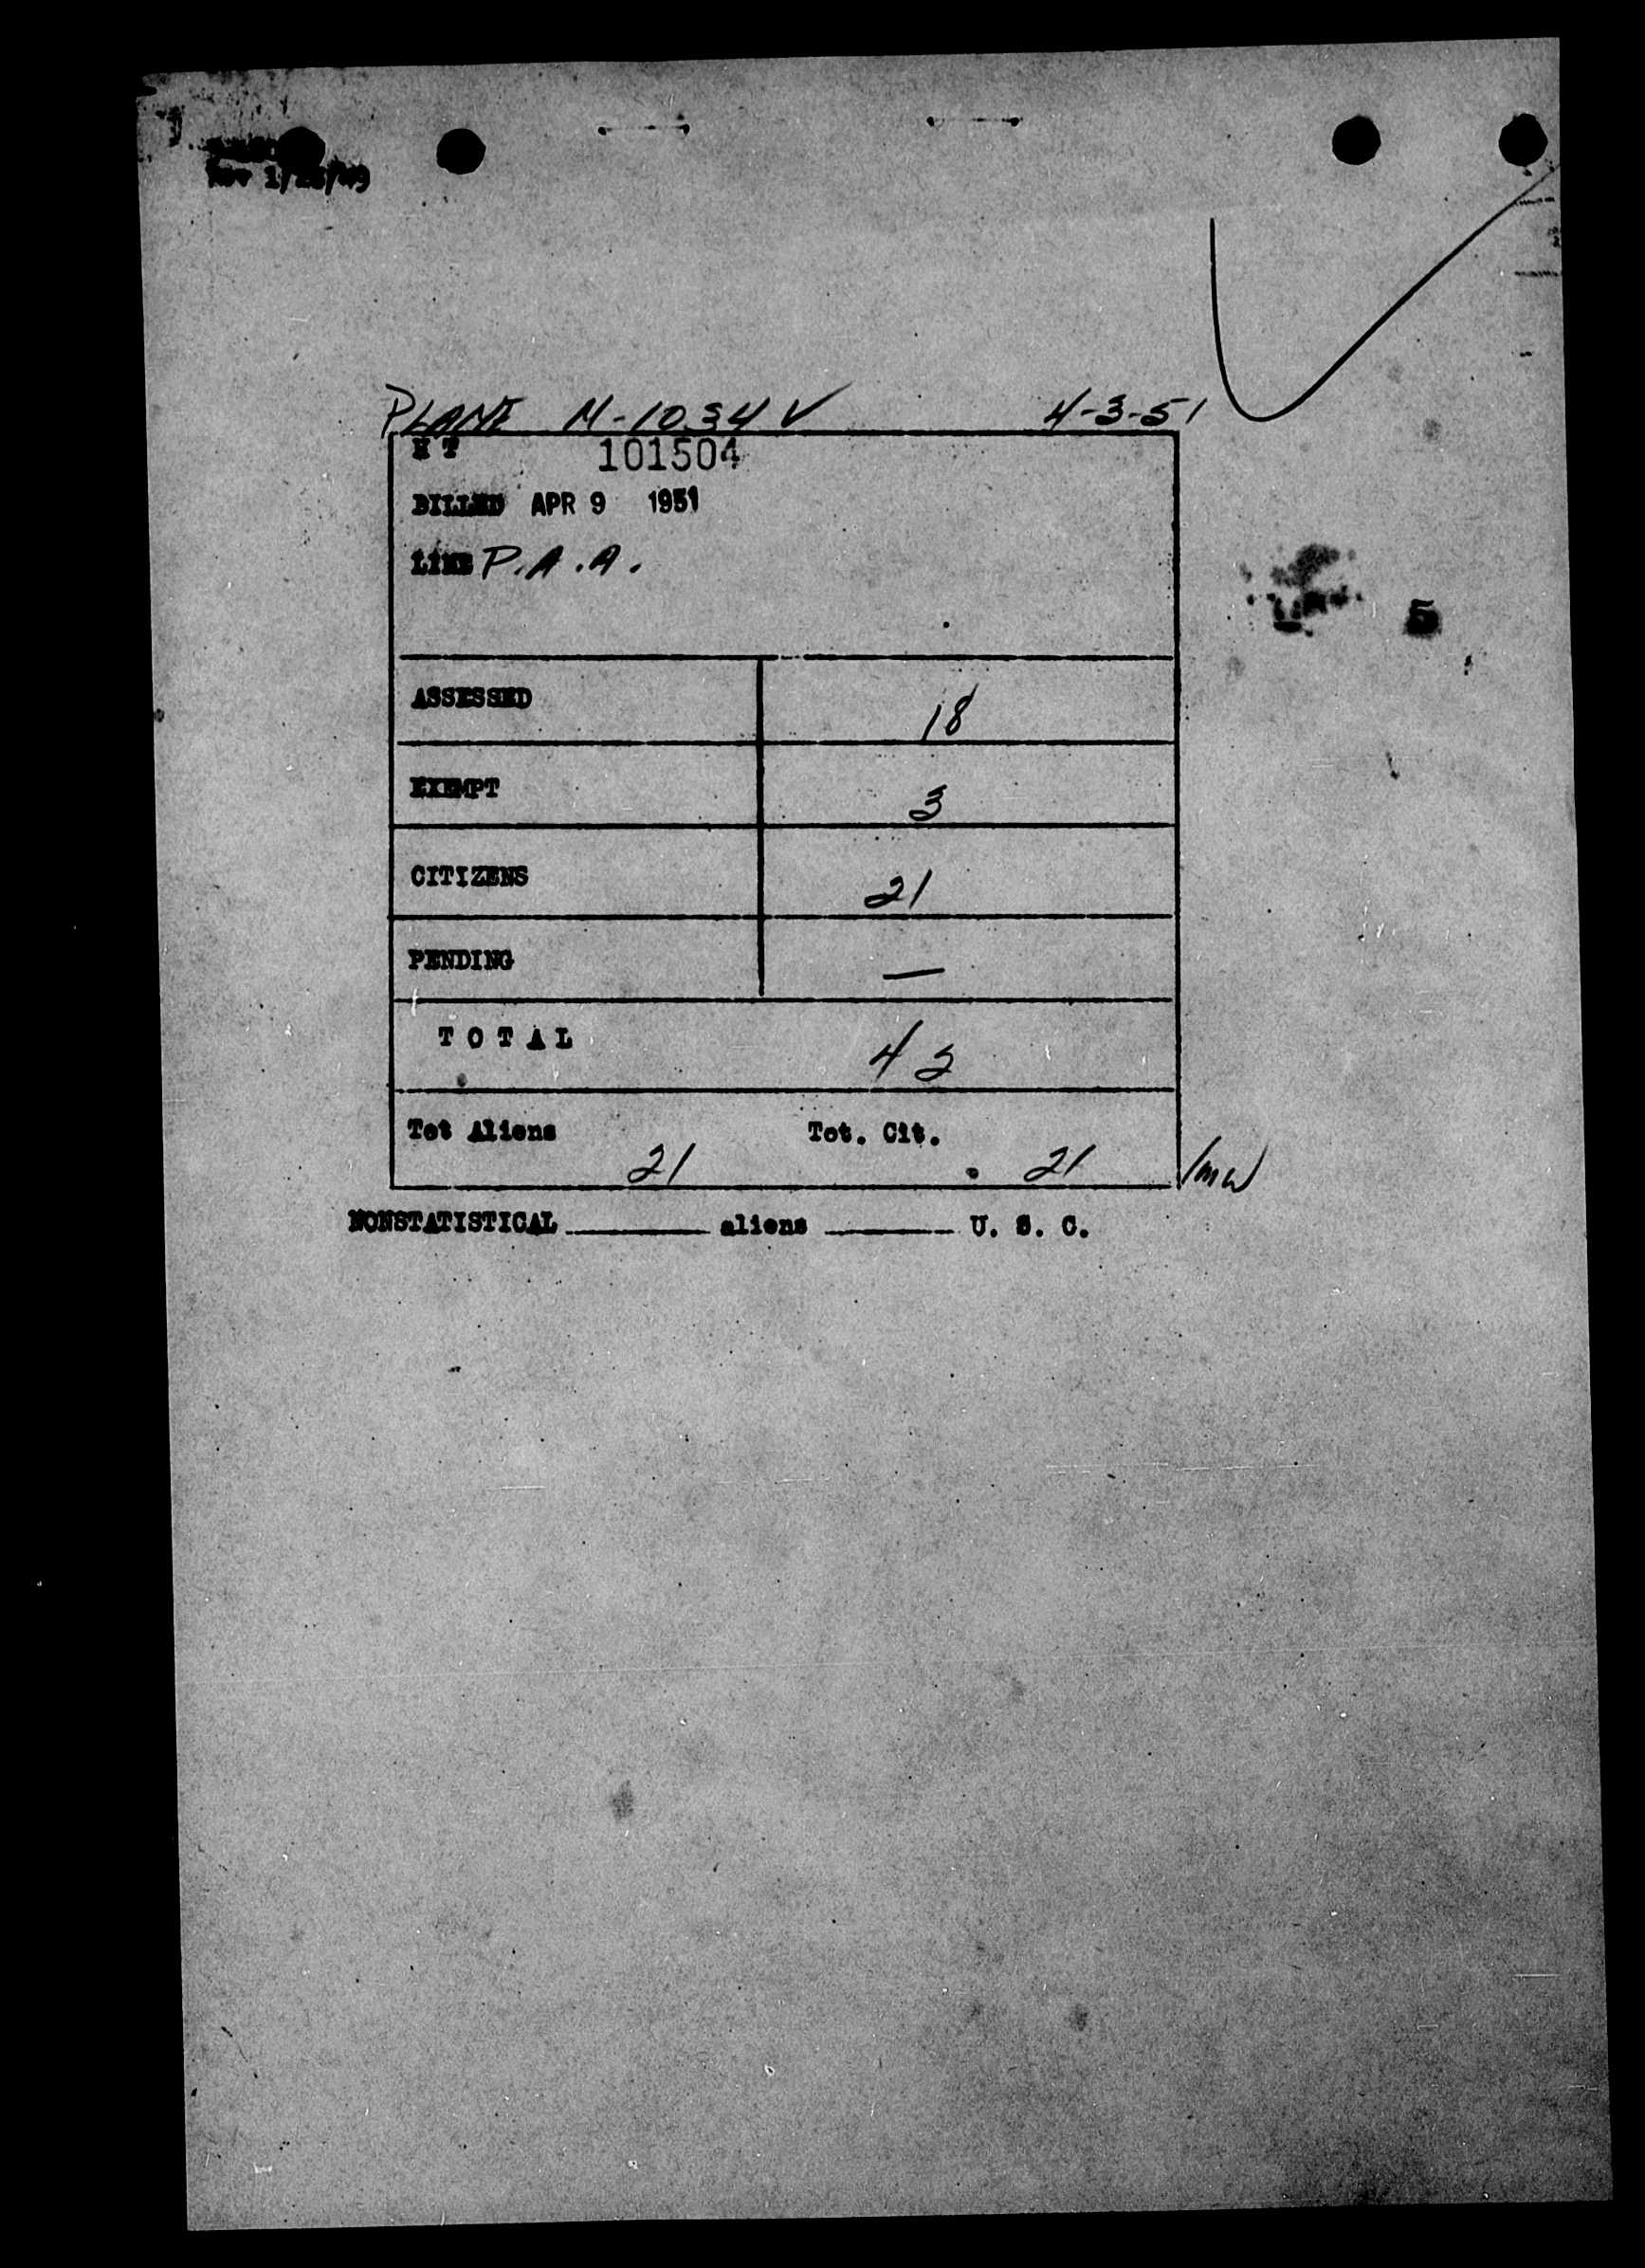 1/25/49
PLANE M-1034V 4-3-51
H T 101504
BILLED APR 9 1951
LINE P.A.A.
5
ASSESSED 18
EXEMPT 3
CITIZENS 21
PENDING —
TOTAL 42
Tot Aliens 21 Tot. Cit. 21 /mw
NONSTATISTICAL ______ aliens ______ U. S. C.